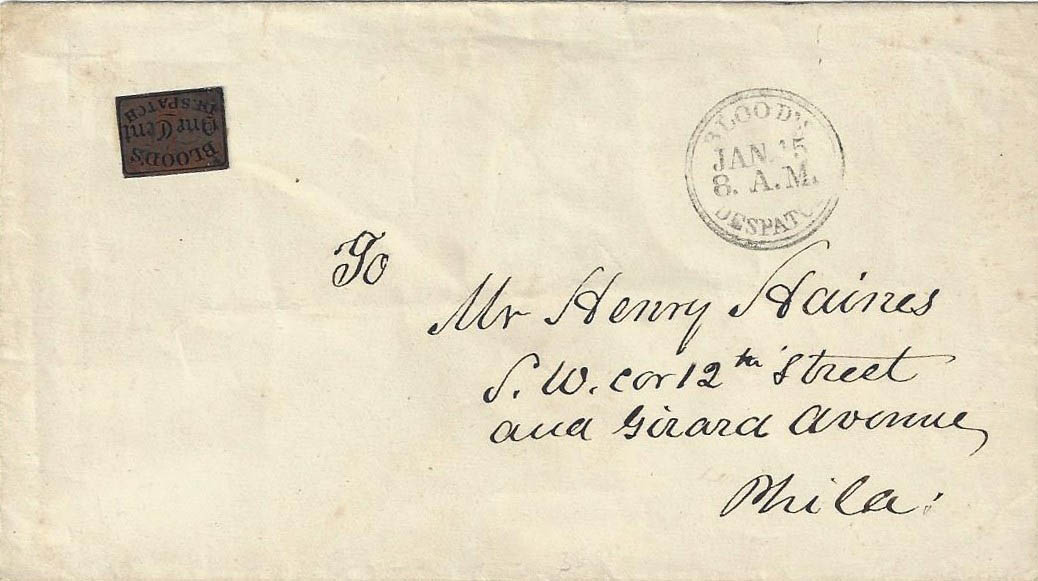 BLOOD'S
One Cent
DESPATCH
BLOOD'S
JAN. 15
8. A.M.
DESPATCH
To
Mr Henry Haines
S. W. cor 12th Street
and Girard Avenue
Phila: